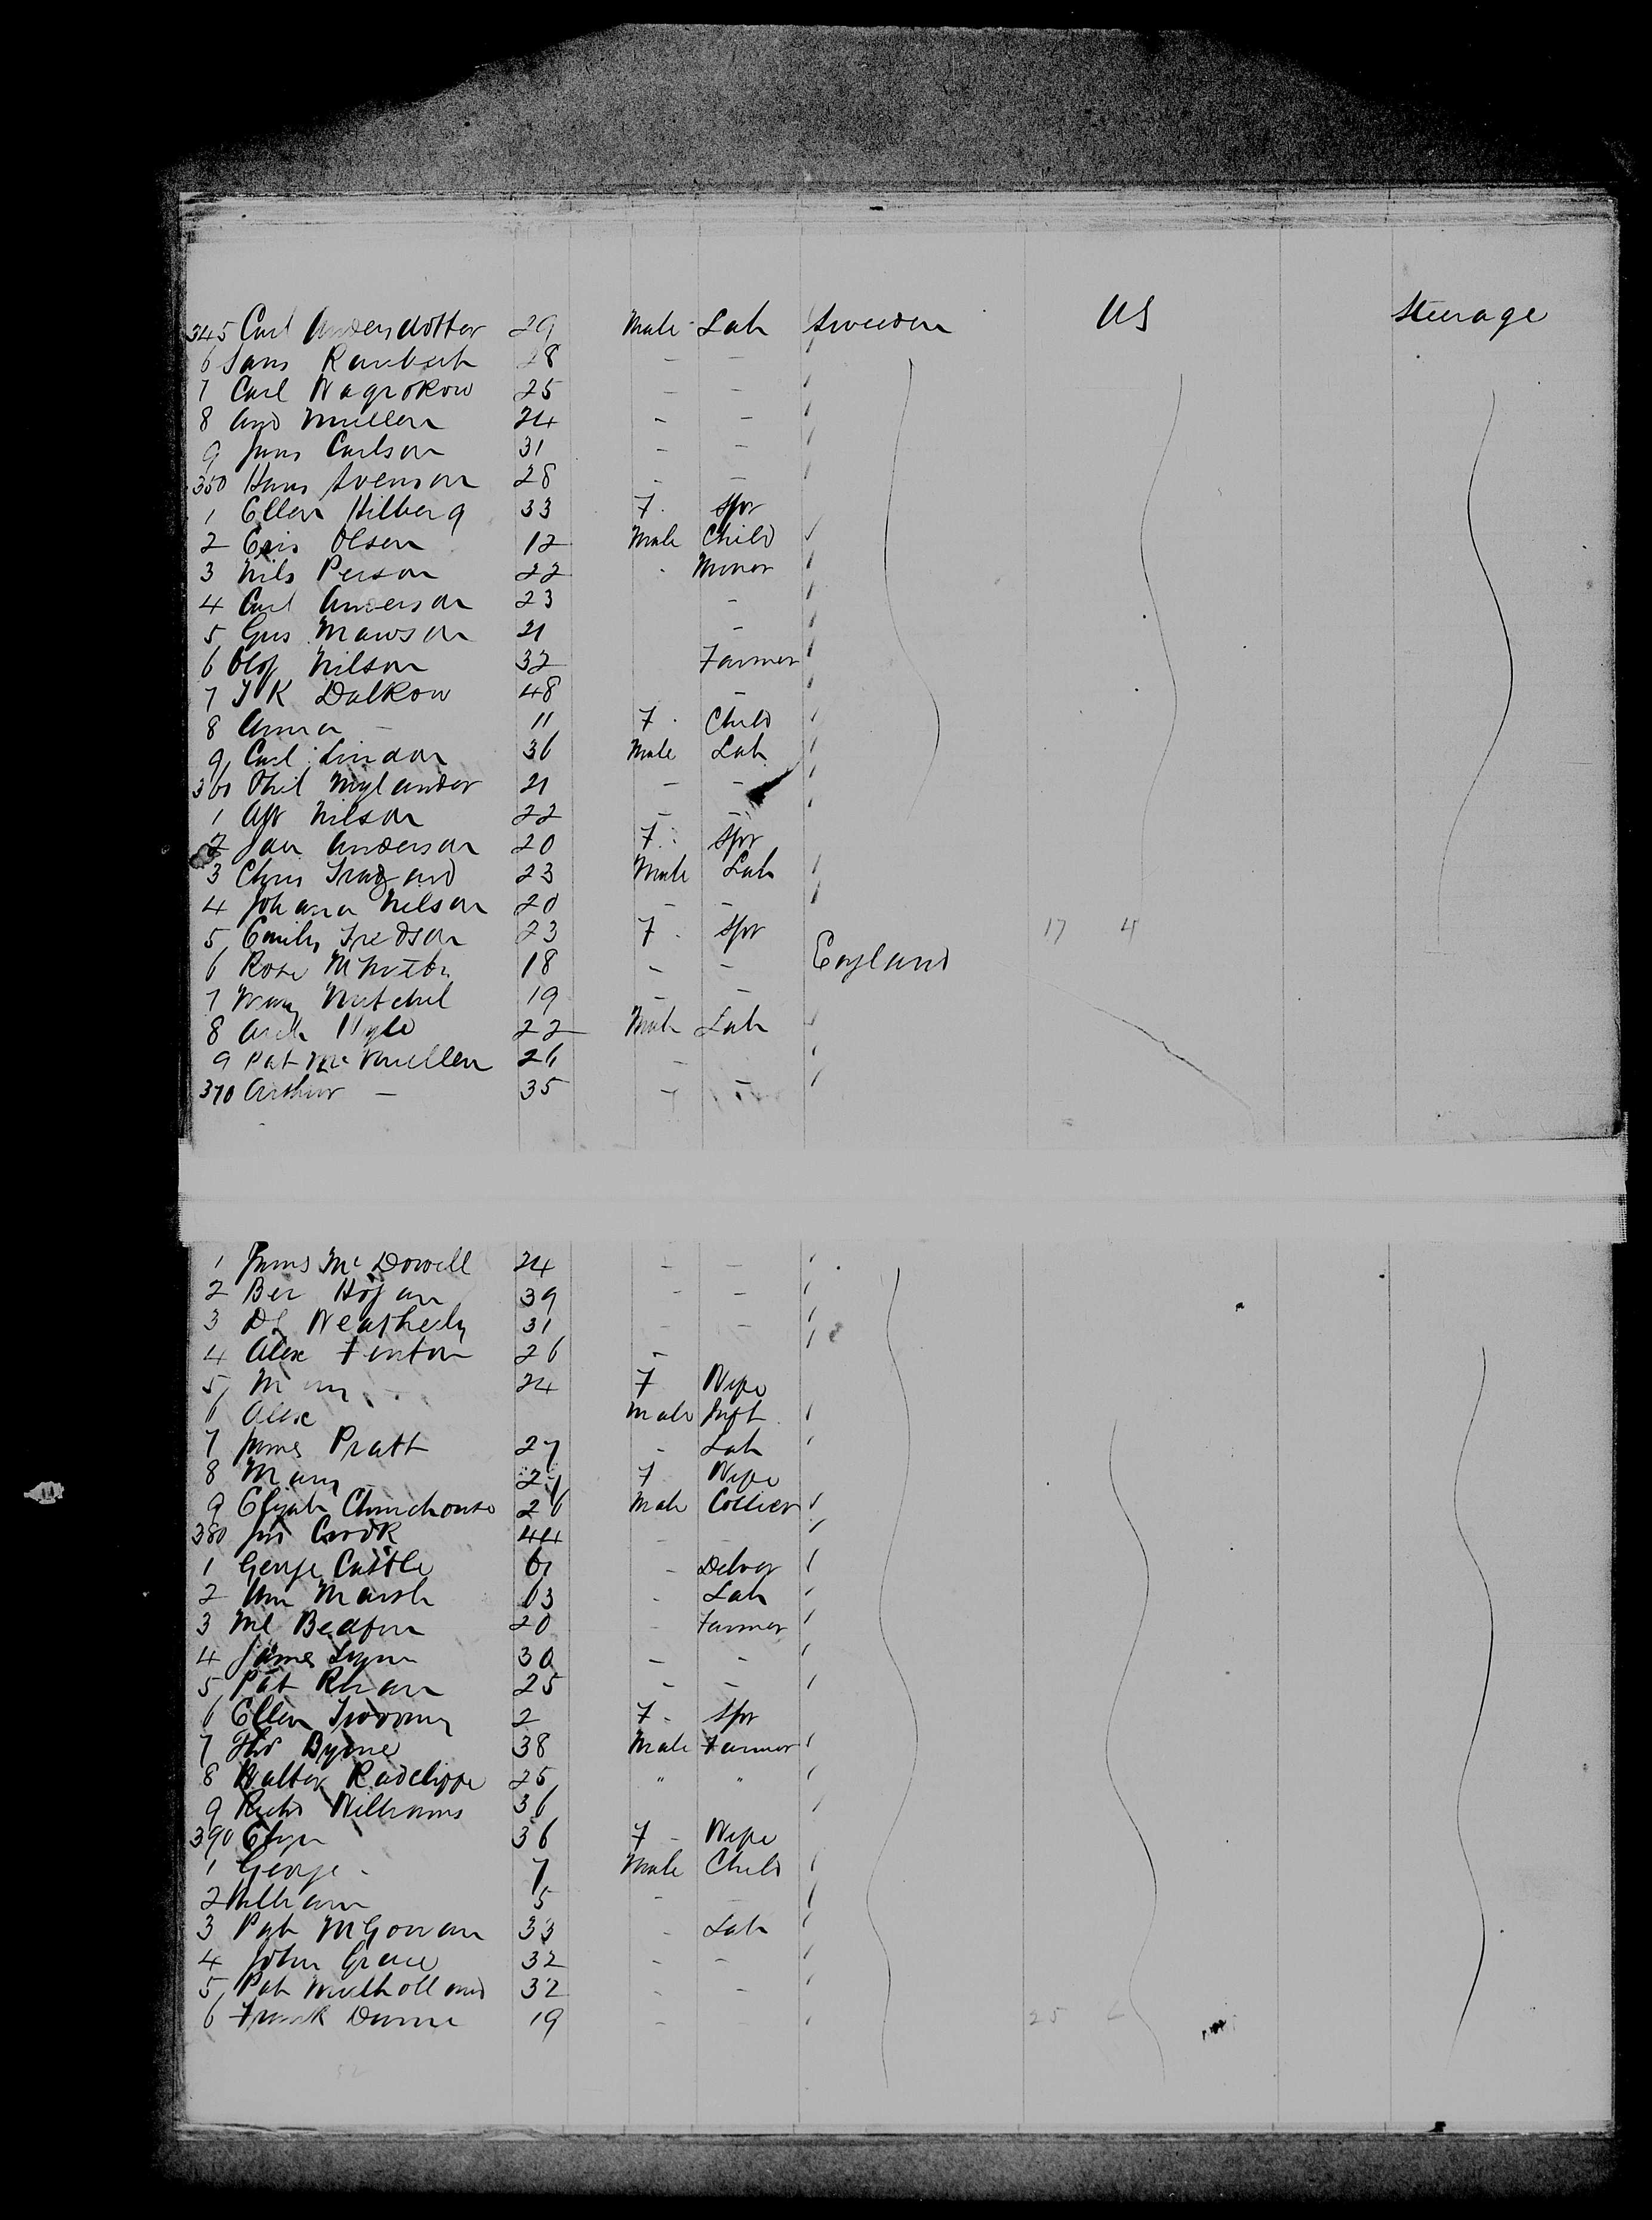 345 Carl Andersdotter 29 Male Lab Sweden US Steerage
6 Rambert 28 - -
7 Carl Wagrokow 25 - -
8 And Mullen 24 - -
9 Jans Carlson 31 - -
350 Hans Svenson 28 - -
1 Ellen Hilberg 33 F. Spr
2 Olsen 12 Male Child
3 Nils Person 22 Minor
4 Carl Anderson 23 -
5 Gus Mawson 21 -
6 Olof Nilson 32 Farmer
7 Dalkow 48 -
8 Anna - 11 F. Child
9 Carl Lindon 36 Male Lab
360 Nylander 21 - -
1 Nilson 22 - -
2 Anderson 20 F. Spr
3 Chris 23 Male Lab
4 Johana Nelson 20 - -
5 Emily Fredson 23 F. Spr 17 4
6 Rose 18 - - England
7 Mary Mitchel 19 - -
8 Arch 22 Male Lab
9 Pat McMullen 26 -
370 Arthur - 35 - -
1 James McDowell 24 - -
2 Hogan 39 - -
3 Weatherly 31 - -
4 Alex Fenton 26 -
5 Mary - 24 F Wife
6 Alex Male Inft
7 James Pratt 27 - Lab
8 Mary F Wife
9 Elijah Churchouse 26 Male Collier
380 Jno Crook 44 -
1 George Castle 61 -
2 Wm Marsh 63 - Lab
3 20 - Farmer
4 James Lynn 30 - -
5 Pat 25 - -
6 Ellen 2 F. Spr
7 Tho Byrne 38 Male Farmer
8 Walter Radcliffe 25 " "
9 Richd Williams 36
390 Eliza 36 F - Wife
1 George - 7 Male Child
2 William 5 - -
3 Pat McGowan 33 - Lab
4 John Grace 32 - -
5 Pat Mulholland 32 - -
6 Frank Dunne 19 - - 25